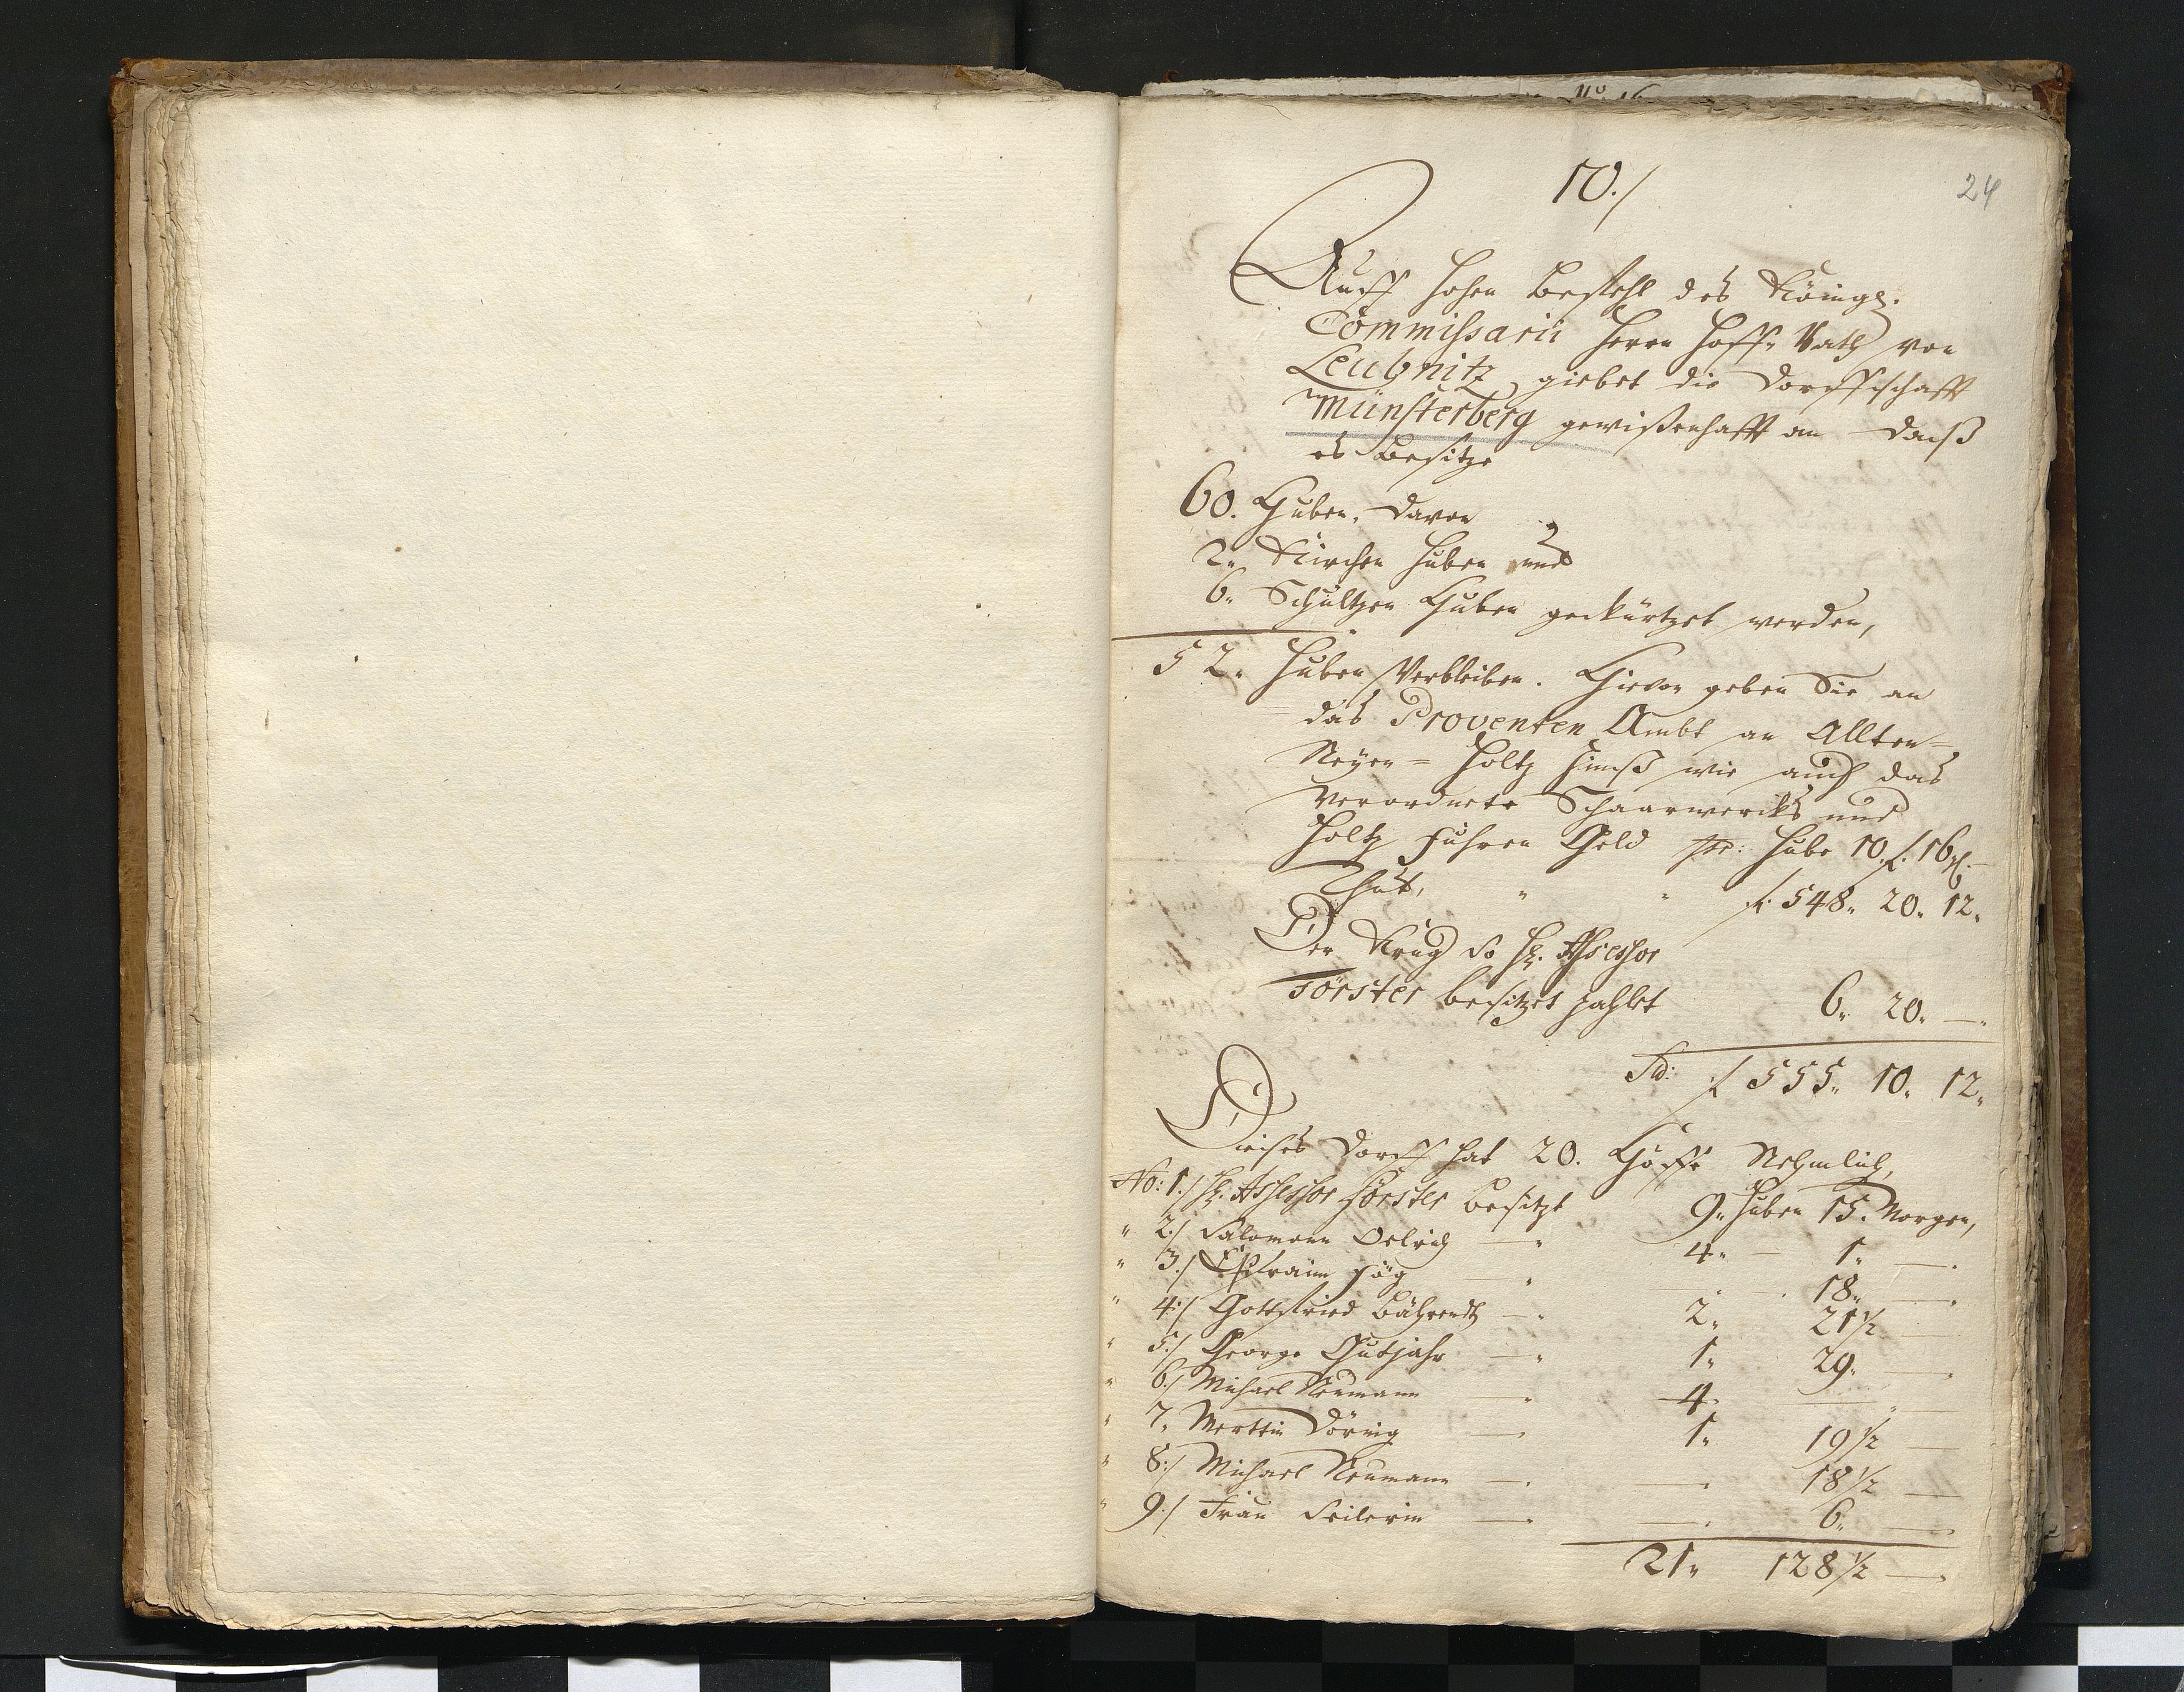 10./
24
Auff hohen Befehl des Königl.
Commissarii Herrn Hoff-Rath von
Leubnitz giebet die Dorffschafft
Münsterberg gewißenhafft an daß
es Besitze
60. Huben, davon
2. Kirchen Huben und
6. Schultzen Huben gekürtzet werden,
52. Huben Verbleiben. Hievon geben Sie an
das Proventen Ambt an Allten-
Neyen- Holtz Zinß wie auch das
verordnete Schaarwercks und
Holtz Fuhren Geld pr: Hube 10. f. 16 gl. –
Thut, " " f. 548. 20. 12.
Der Krug so Hr. Assessor
Förster besitzet zahlet 6. 20. —.
f 555. 10. 12.
Dieses Dorff hat 20. Höffe Nehmlich,
No: 1./ Hr. Assessor Förster besitzt 9. Huben 15. Morgen,
" 2./ Salomonn Oelrich — " 4. — 1. —.
" 3./ Ephraim — " — . 18. —.
" 4./ Gottfried Bährendt — " 2. 21½ —
" 5./ George Gutjahr — " 1. 29. —.
" 6./ Michael Neumann " 4. — " —
" 7. Merttin Döring — " 1. 19½ —
" 8./ Michael Neumann — . — . 18½ —
" 9./ Frau Seilerin — . — . 6. —.
21. 128½ —.